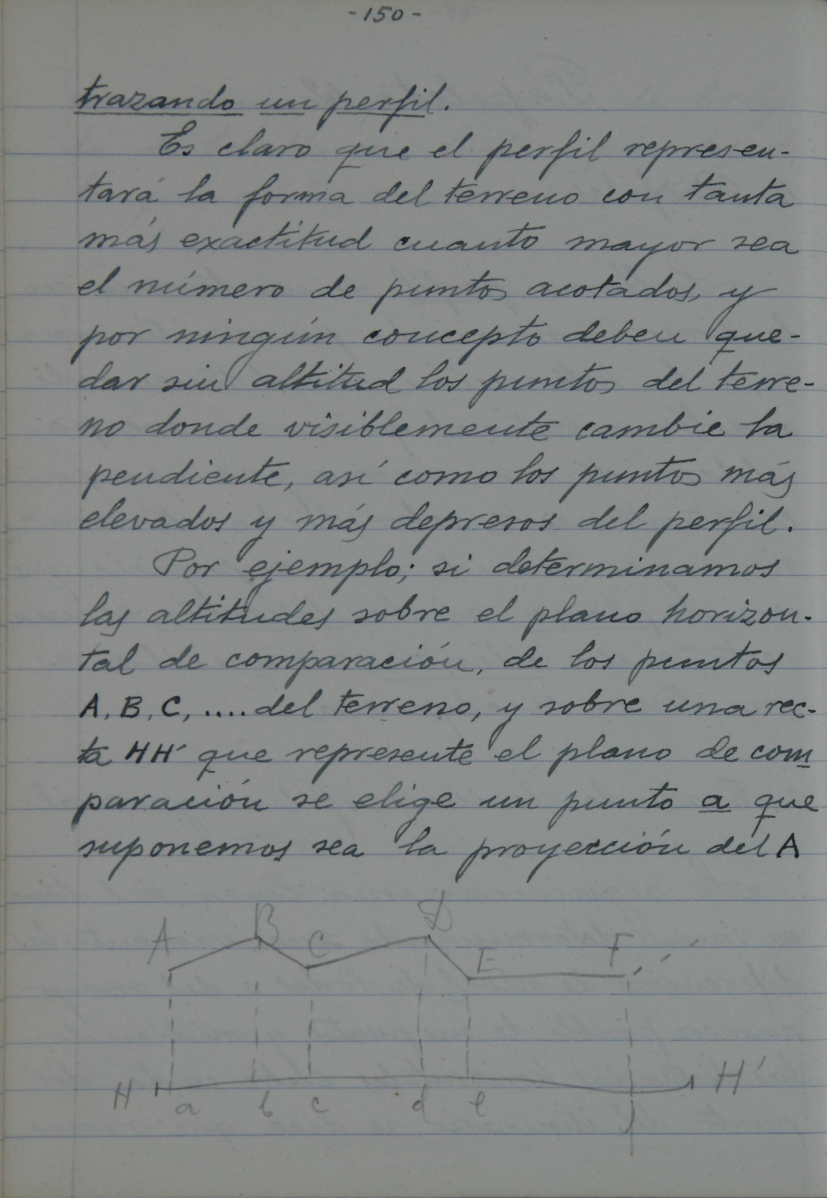 -150-
trazando un perfil.
Es claro que el perfil represen-
tará la forma del terreno con tanta
más exactitud cuanto mayor sea
el número de puntos acotados, y
por ningún concepto deben que-
dar sin altitud los puntos del terre-
no donde visiblemente cambie la
pendiente, así como los puntos más
elevados y más depresos del perfil.
Por ejemplo; si determinamos
las altitudes sobre el plano horizon-
tal de comparación, de los puntos
A, B, C, .... del terreno, y sobre una rec-
ta HH' que represente el plano de com
paración se elige un punto a que
suponemos sea la proyección del A
A B C D E F
H H'
a b c d e f